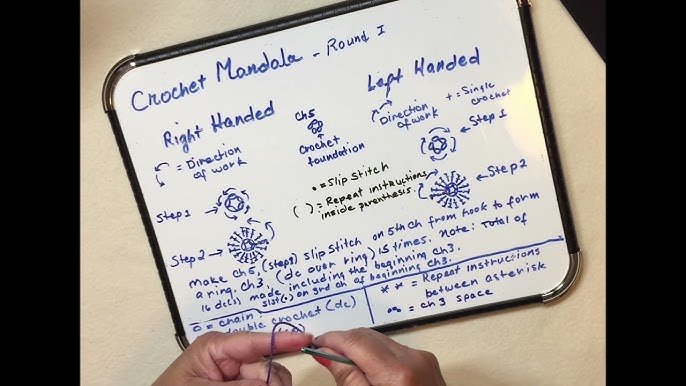 Crochet Mandala - Round I
Right Handed
Left Handed
= Direction of work
Ch5
Crochet foundation
Direction of work
+ = Single crochet
Step 1
Step 2
Step 1
Step 2
• = Slip stitch
( ) = Repeat instructions inside parenthesis.
make ch5, (step 1) slip stitch on 5th ch from hook to form
a ring. Ch3, (dc over ring) 15 times. Note: Total of
16 dc(s) made, including the beginning ch3.
slst(•) on 3rd ch of beginning ch3.
= chain
double crochet (dc)
* * = Repeat instructions
between asterisk
= ch 3 space